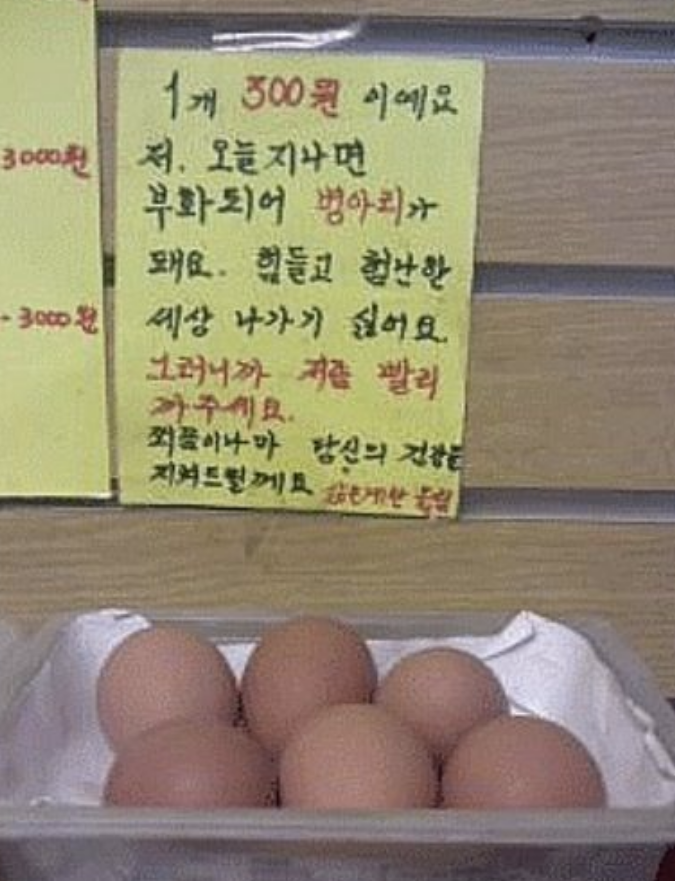 3000원
- 3000원
1개 300원 이예요
저. 오늘지나면
부화되어 병아리가
돼요. 힘들고 험난한
세상 나가기 싫어요.
그러니까 저를 빨리
까주세요.
쬐끔이나마 당신의 건강을
지켜드릴께요 삶은계란 올림